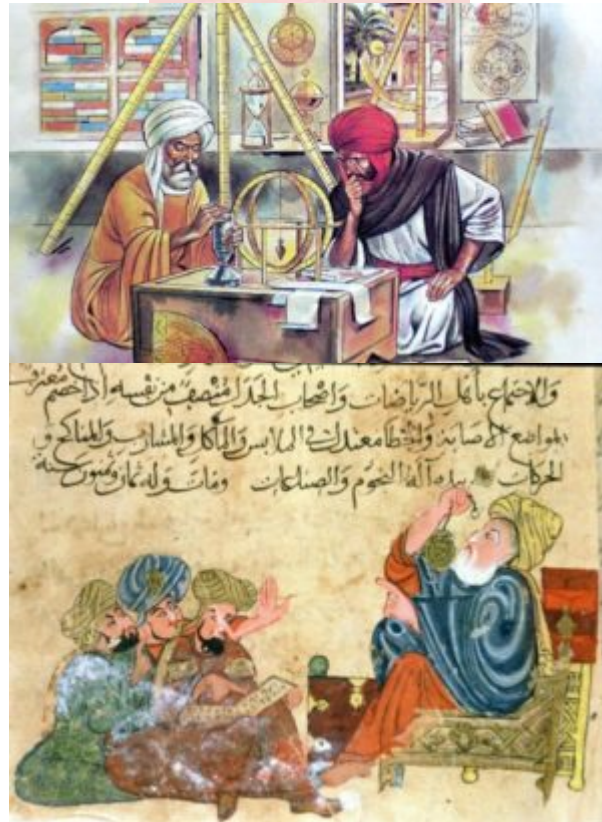 والاجتماع بأهل الرياضات واصحاب الجدل منصف من نفسه اذا خصم معترف
بمواضع الاصابة والخطا معتدل في الملابس والمآكل والمشارب والمناكح و
الحركات بيده آلة النجوم والصناعات ومات وله ثمان وستون سنة